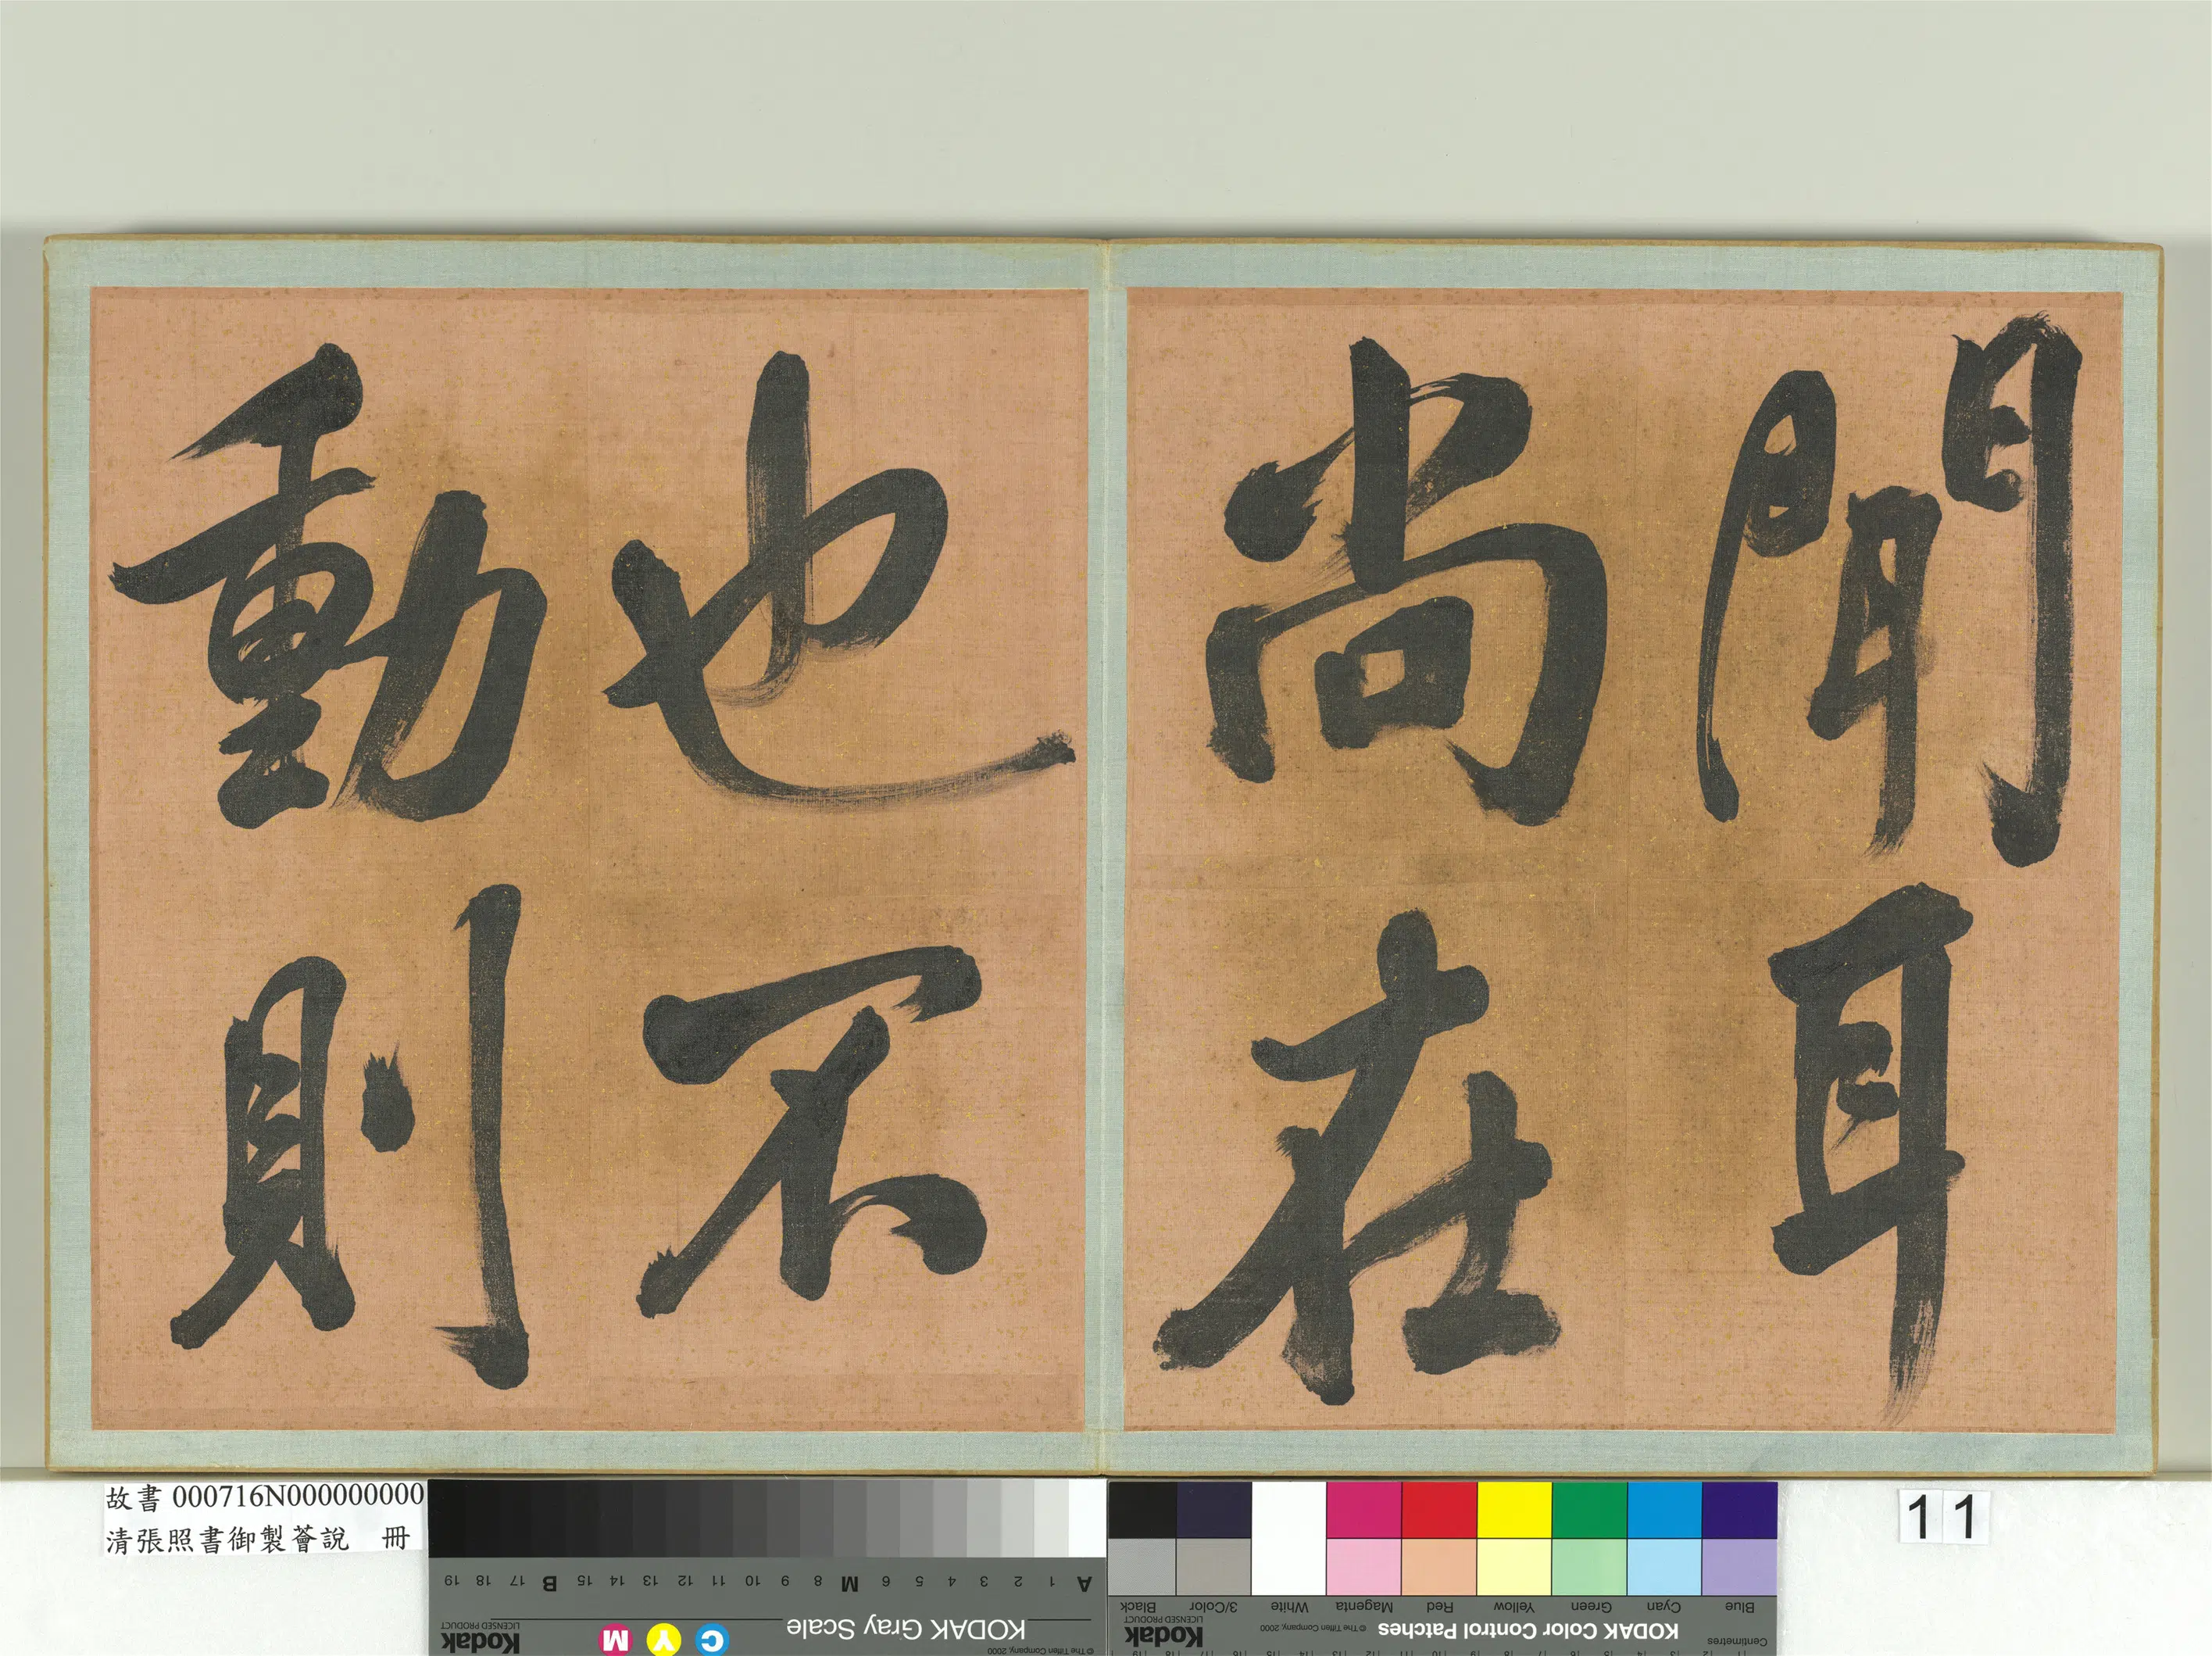 聞耳
尚在
也不
動則
故書 000716N000000000
清張照書御製薈說 冊
11
A 1 2 3 4 5 6 M 8 9 10 11 12 13 14 15 B 17 18 19
KODAK Gray Scale
C Y M
Kodak
LICENSED PRODUCT
© The Tiffen Company, 2000
Blue Cyan Green Yellow Red Magenta White 3/Color Black
KODAK Color Control Patches
© The Tiffen Company, 2000
Kodak
LICENSED PRODUCT
Centimetres